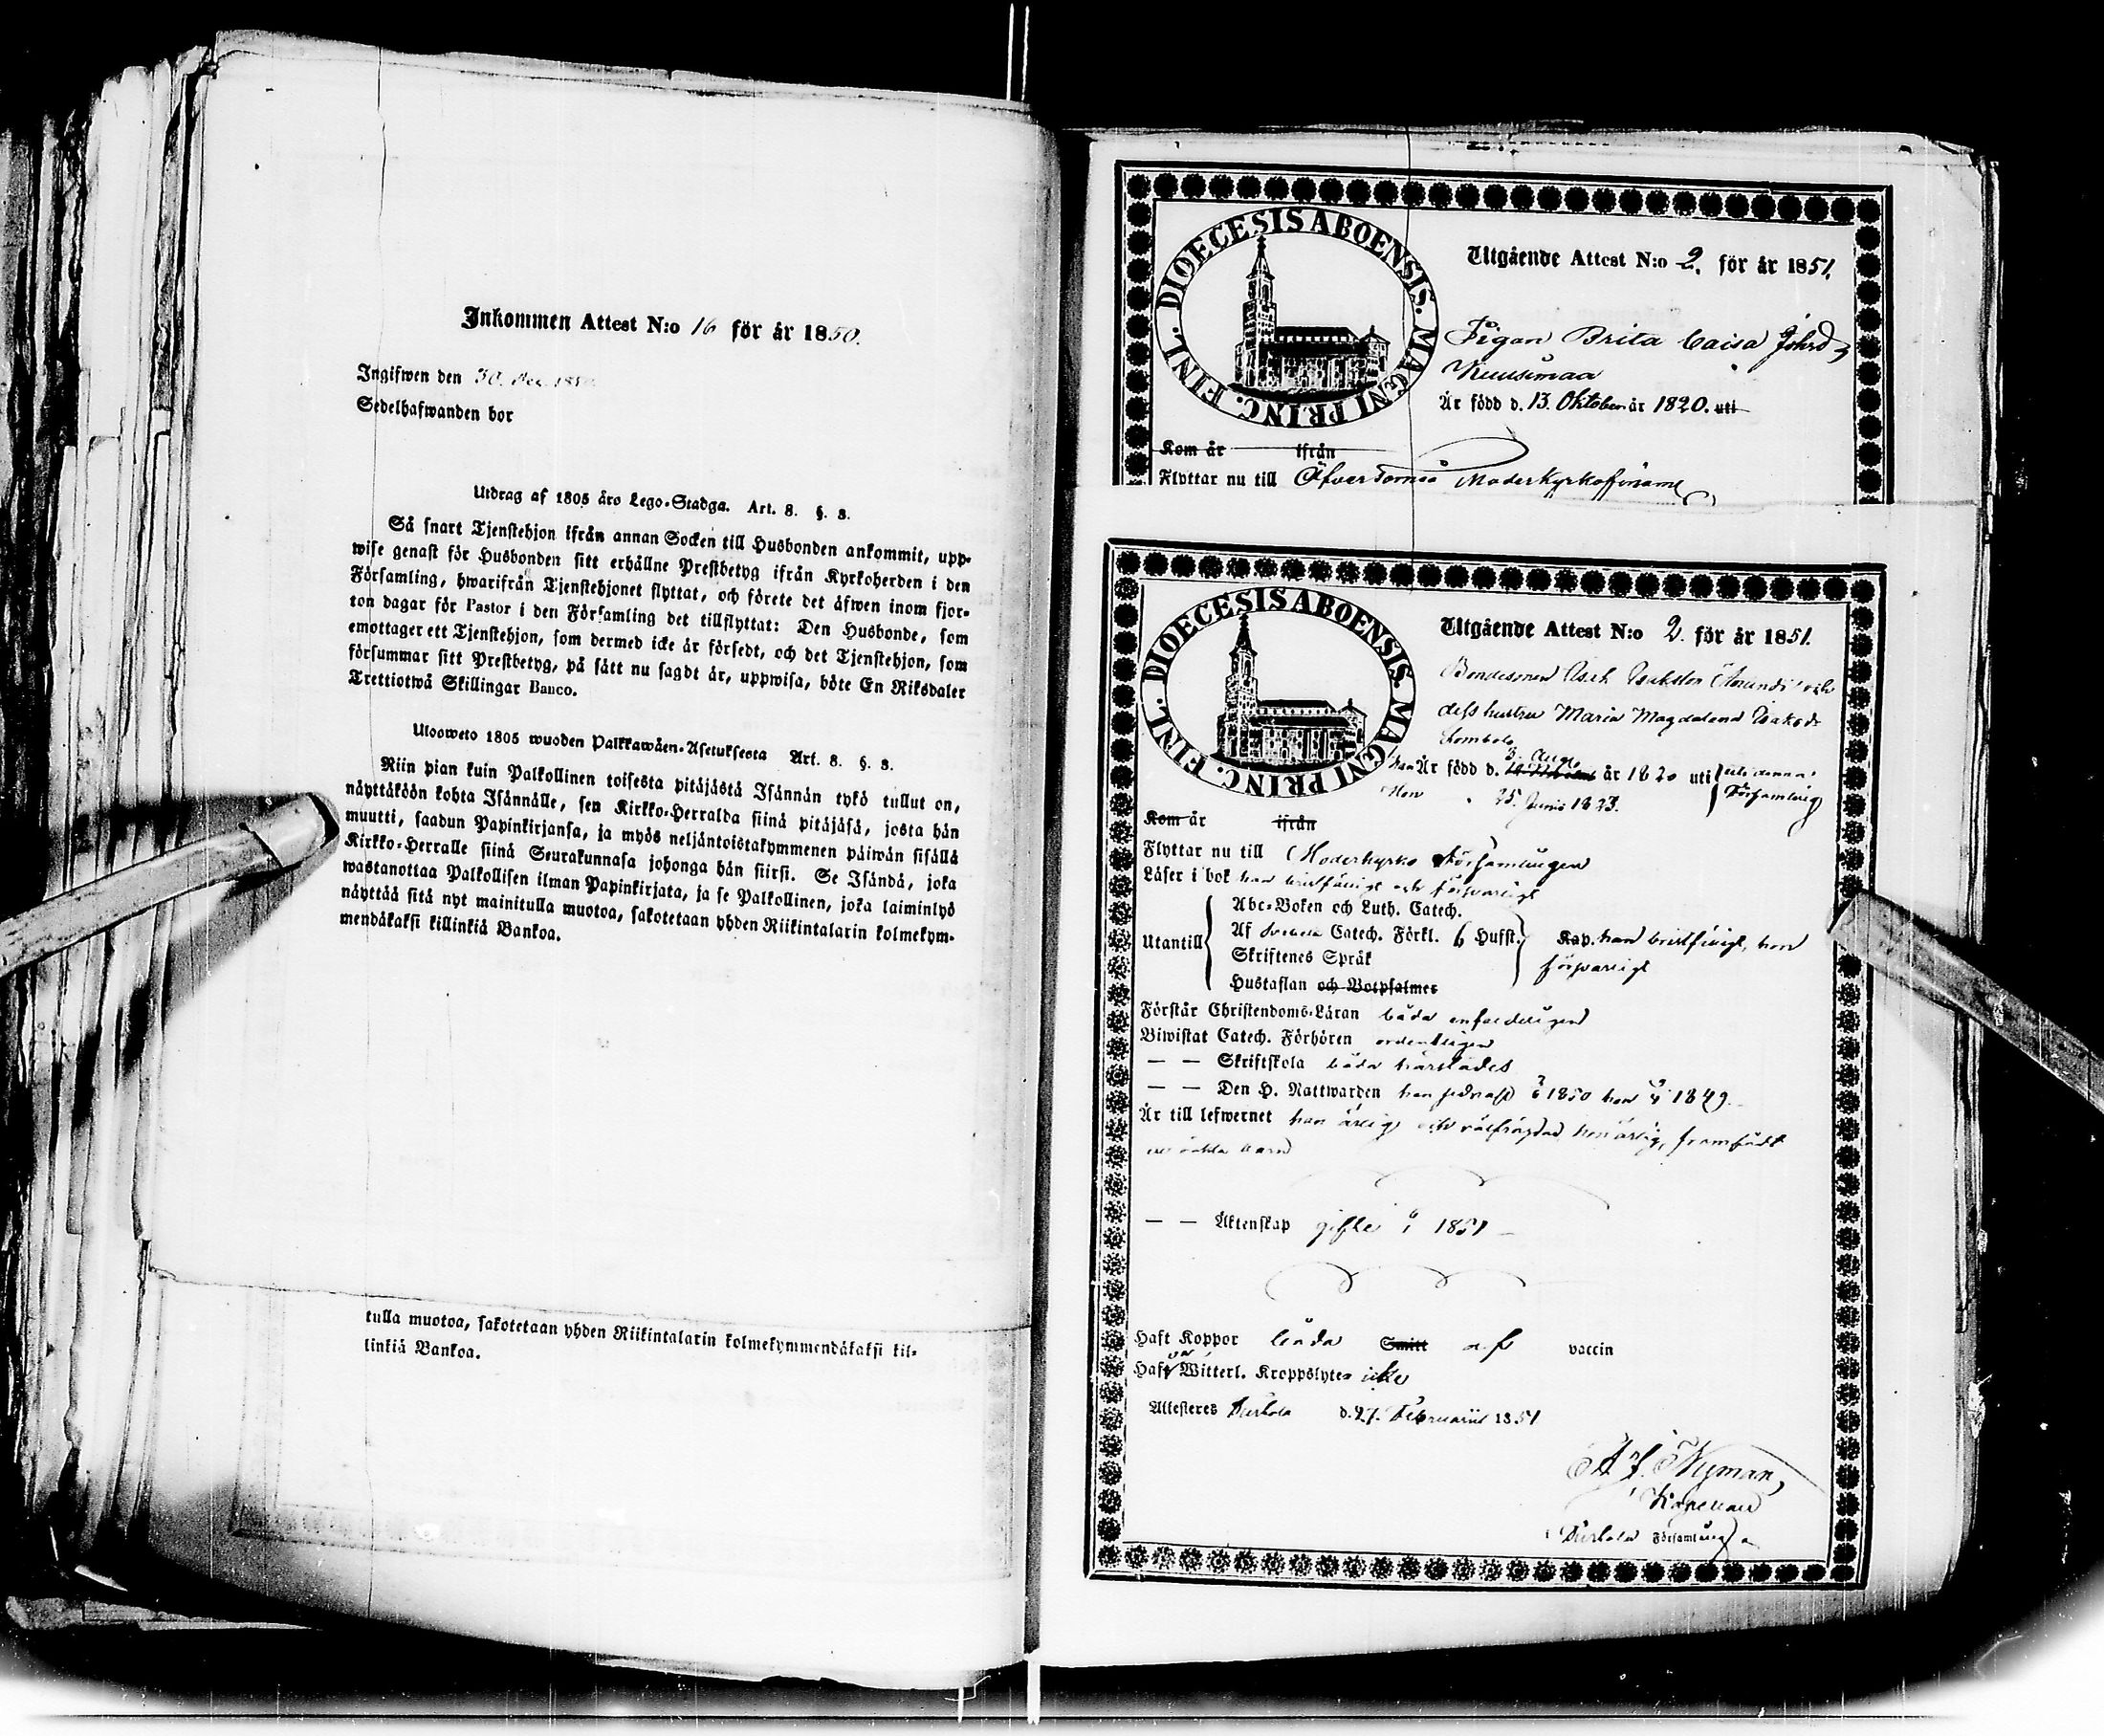 Inkommen Attest N:o 16 för år 1850.
Ingifwen den 30. Dec. 1850
Sedelhafwanden bor
Utdrag af 1805 års Lego-Stadga. Art. 8. §. 8.
Så snart Tjenstehjon ifrån annan Socken till Husbonden ankommit, upp-
wise genast för Husbonden sitt erhållne Prestbetyg ifrån Kyrkoherden i den
Församling, hwarifrån Tjenstehjonet flyttat, och förete det äfwen inom fjor-
ton dagar för Pastor i den Församling det tillflyttat: Den Husbonde, som
emottager ett Tjenstehjon, som dermed icke är försedt, och det Tjenstehjon, som
försummar sitt Prestbetyg, på sätt nu sagdt är, uppwisa, böte En Riksdaler
Trettiotwå Skillingar Banco.
Ulosweto 1805 wuoden Palkkawäen-Asetuksesta Art. 8. §. 8.
Niin pian kuin Palkollinen toisesta pitäjästä Isännän tykö tullut on,
näyttäköön kohta Isännälle, sen Kirkko-Herralda siinä pitäjäsä, josta hän
muutti, saadun Papinkirjansa, ja myös neljäntoistakymmenen päiwän sisällä
Kirkko-Herralle siinä Seurakunnasa johonga hän siirsi. Se Isändä, joka
wastanottaa Palkollisen ilman Papinkirjata, ja se Palkollinen, joka laiminlyö
näyttää sitä nyt mainitulla muotoa, sakotetaan yhden Riikintalarin kolmekym-
mendäkaksi killinkiä Bankoa.
tulla muotoa, sakotetaan yhden Riikintalarin kolmekymmendäkaksi kil-
linkiä Bankoa.
FINL. DIOECESIS ABOENSIS. MAGNI PRINC.
Utgående Attest N:o 2. för år 1851.
Pigan Brita Caisa Johsd
Kuusimaa
Är född d. 13. Oktober år 1820. uti
Kom år ifrån
Flyttar nu till Öfver Torneå Moderkyrkoförsaml
FINL. DIOECESIS ABOENSIS. MAGNI PRINC.
Utgående Attest N:o 2. för år 1851.
Bondesonen Isak Isaksson och
dess hustru Maria Magdalena Isaksdr
Lombolo
han Är född d. 3. Aug. år 1820 uti denna
Hon 25. Junii 1823. Församling
Kom år ifrån
Flyttar nu till Moderkyrko Församlingen
Läser i bok han bristfälligt och försvarligt
Abc-Boken och Luth. Catech.
Utantill Af Catech. Förkl. 6 Hufst. Kap. han bristfälligt, hon
Skriftenes Språk försvarligt
Hustaflan och Botpsalmer
Förstår Christendoms-Läran båda enfaldeligen
Biwistat Catech. Förhören ordentligen
— — Skriftskola båda härstädes
— — Den H. Nattwarden han sednast 1850 hon 1849.
Är till lefwernet han ärlig och välfrägdad, hon ärlig, framfödt
oäkta barn
— — Äktenskap gifte 1851
Haft Koppor båda Smitt af vaccin
Haft Witterl. Kroppslyte icke
Attesteres Turtola d. 27. Februarii 1851
A. F. Nyman,
Kapellan
Turtola Församling